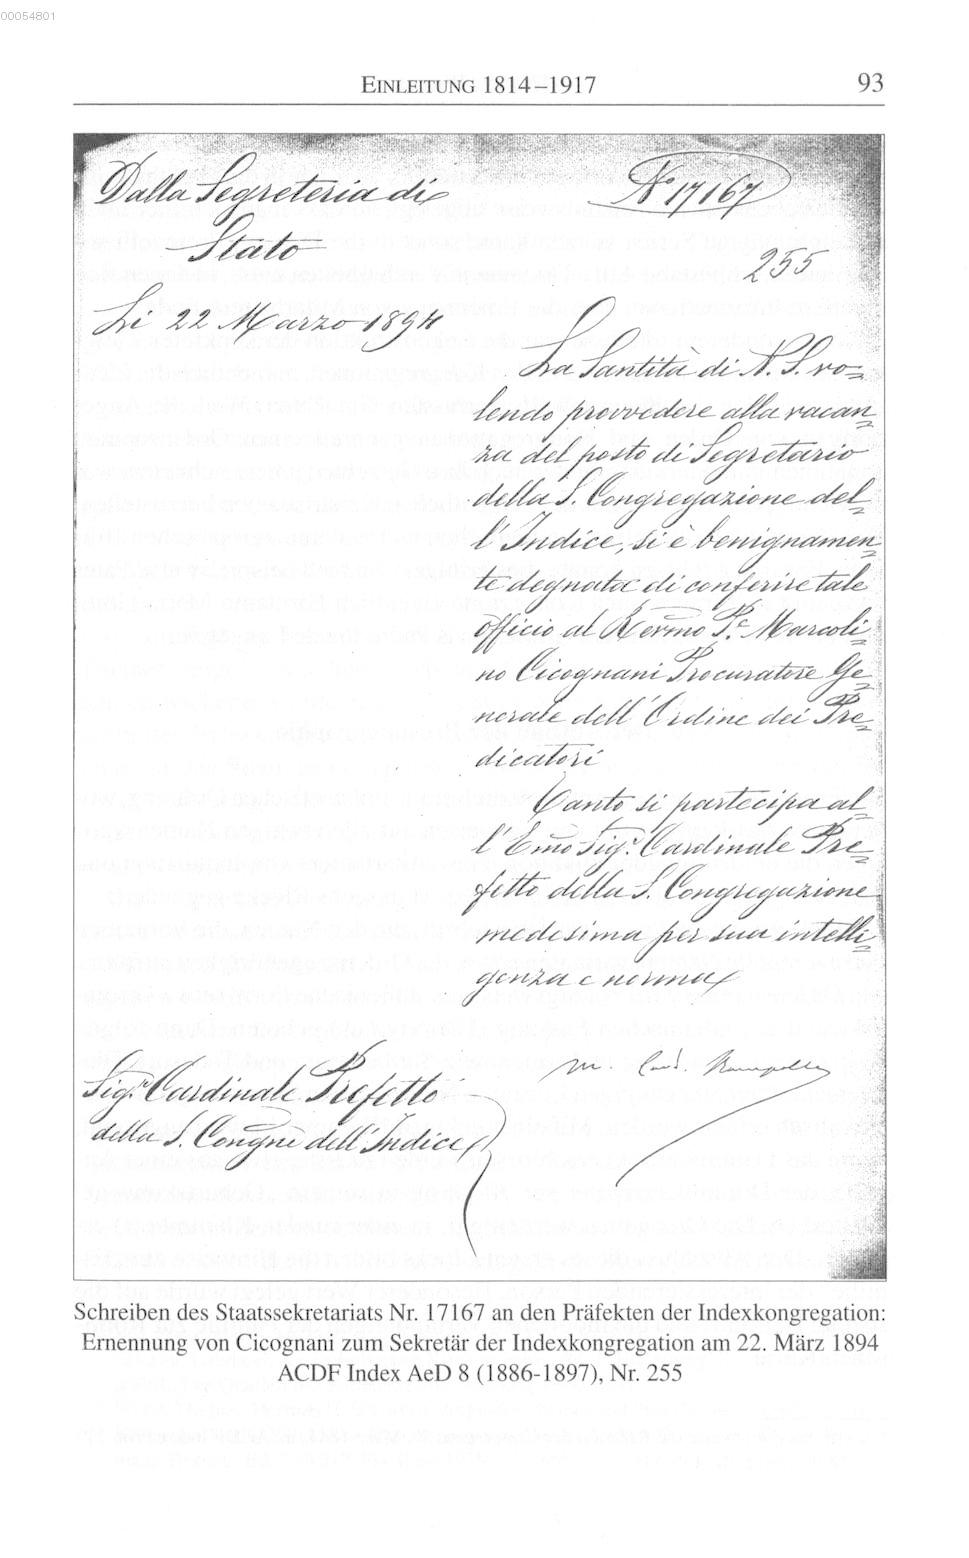 00054801
EINLEITUNG 1814–1917
93
Dalla Segreteria di
Stato
Li 22 Marzo 1894
No 17167
255
La Santità di N. S. vo=
lendo provvedere alla vacan=
za del posto di Segretario
della S. Congregazione del=
l'Indice, si è benignamen=
te degnata di conferire tale
officio al Revmo P.e Marcoli=
no Cicognani Procuratore Ge=
nerale dell'Ordine dei Pre=
dicatori
Tanto si partecipa al=
l'Emo Sigr. Cardinale Pre=
fetto della S. Congregazione
medesima per sua intelli=
genza e norma
M. Card. Rampolla
Sigr. Cardinale Prefetto
della S. Congne dell'Indice
Schreiben des Staatssekretariats Nr. 17167 an den Präfekten der Indexkongregation:
Ernennung von Cicognani zum Sekretär der Indexkongregation am 22. März 1894
ACDF Index AeD 8 (1886-1897), Nr. 255